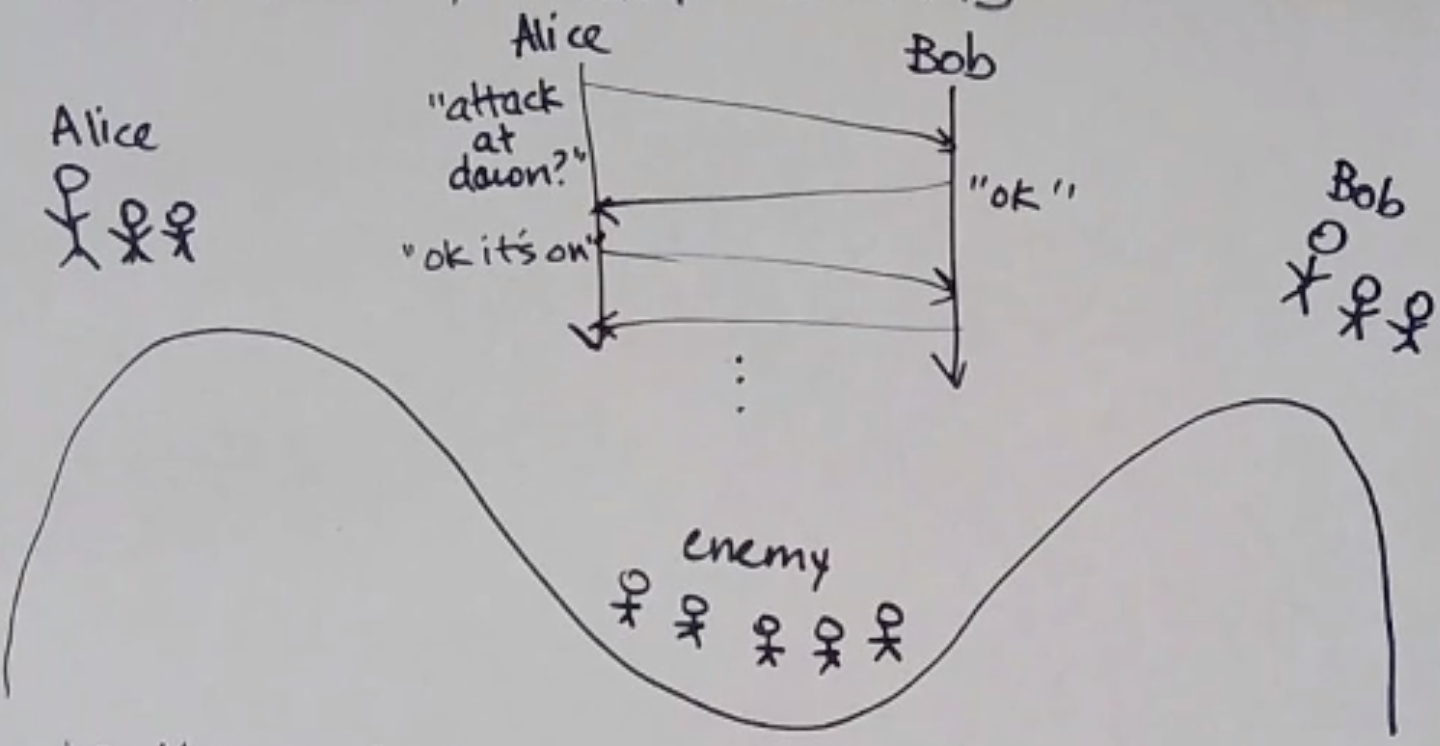 Alice
Bob
"attack
at
dawn?"
"ok"
"ok it's on"
Alice
Bob
enemy